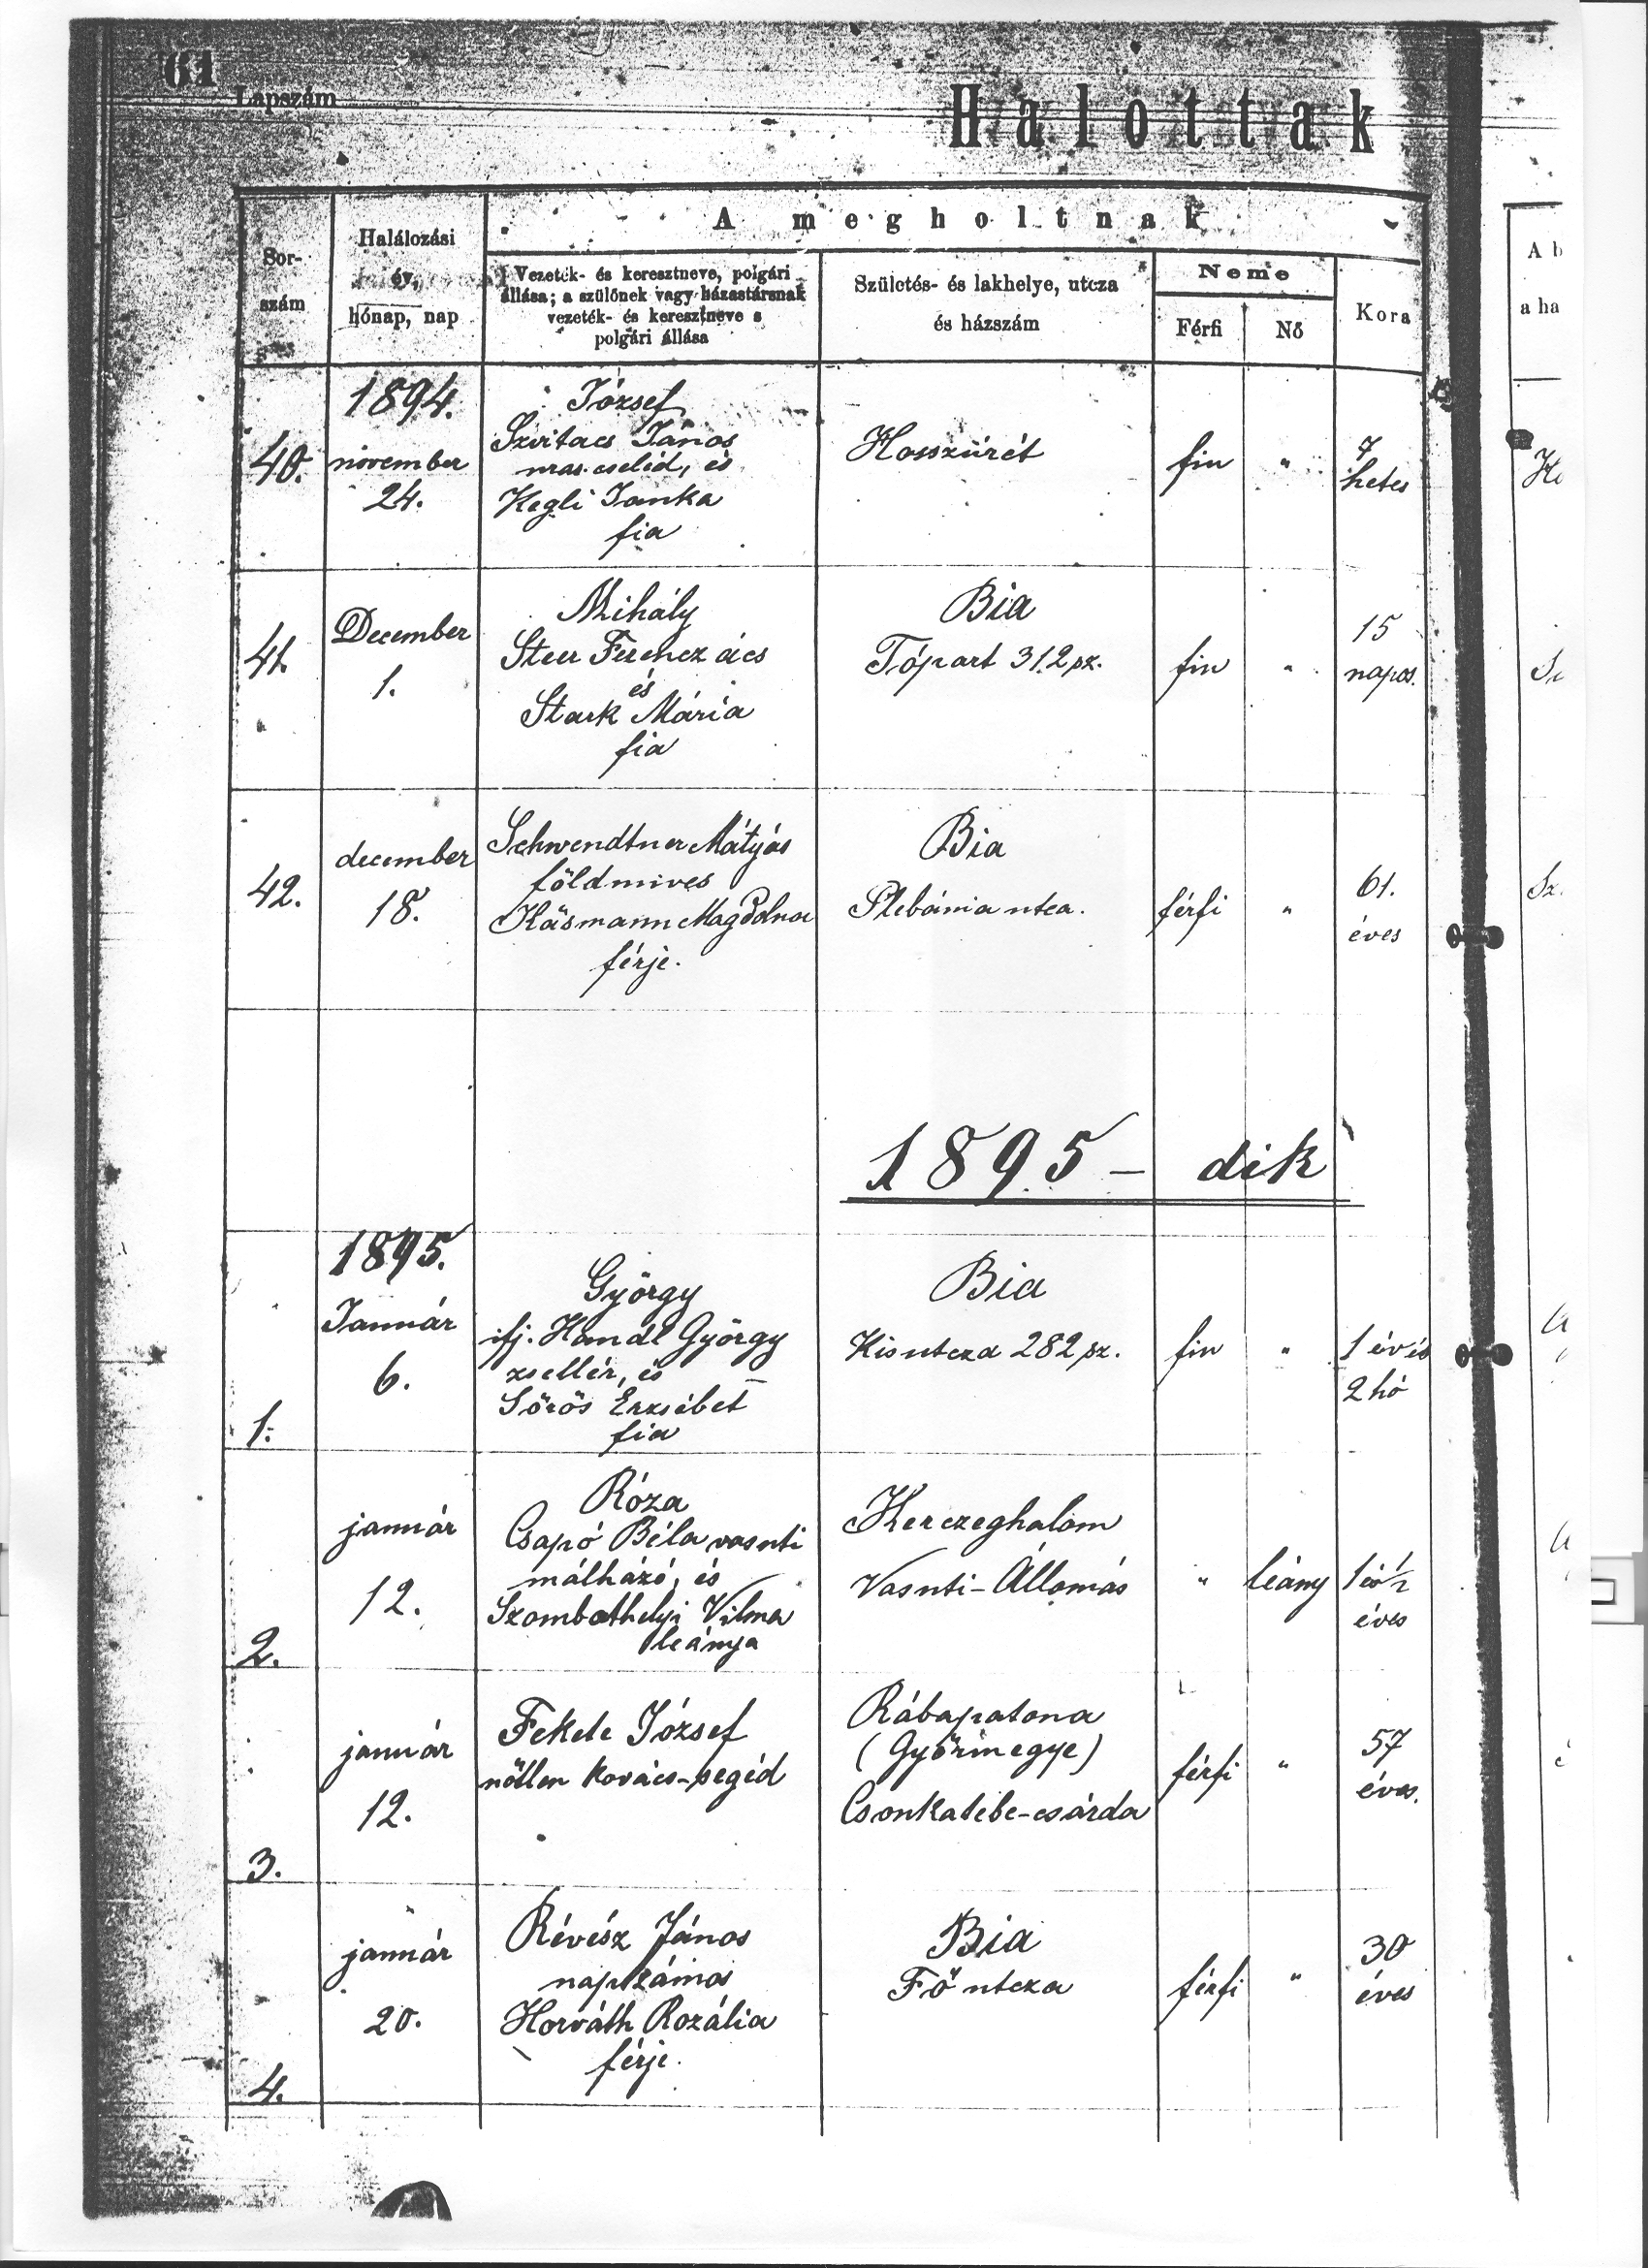 61
Lapszám
Halottak
Sor-
szám
Halálozási
év,
hónap, nap
A megholtnak
Vezeték- és keresztneve, polgári
állása; a szülőnek vagy házastársnak
vezeték- és keresztneve s
polgári állása
Születés- és lakhelye, utcza
és házszám
Neme
Férfi
Nő
Kora
A b
a ha
40.
1894.
november
24.
József
Szvitacs János
uras. cseléd, és
Kegli Janka
fia
Hosszúrét
fiu
"
7
hetes
41.
December
1.
Mihály
Steer Ferencz ács
és
Stark Mária
fia
Bia
Tópart 312 sz.
fiu
"
15
napos.
42.
december
18.
Schwendtner Mátyás
földmives
Käsmann Magdolna
férje.
Bia
Plebánia utca.
férfi
"
61.
éves
1895 - dik
1.
1895.
Január
6.
György
ifj. Handl György
zsellér, és
Sörös Erzsébet
fia
Bia
Kisutcza 282 sz.
fiu
"
1 év és
2 hó
2.
január
12.
Róza
Csapó Béla vasuti
málházó, és
Szombathelyi Vilma
leánya
Herczeghalom
Vasuti-Állomás
"
leány
éves
3.
január
12.
Fekete József
nőtlen kovács-segéd
Rábapatona
(Győrmegye)
csárda
férfi
"
57
éves.
4.
január
20.
Révész János
napszámos
Horváth Rozália
férje.
Bia
Fő utcza
férfi
"
30
éves